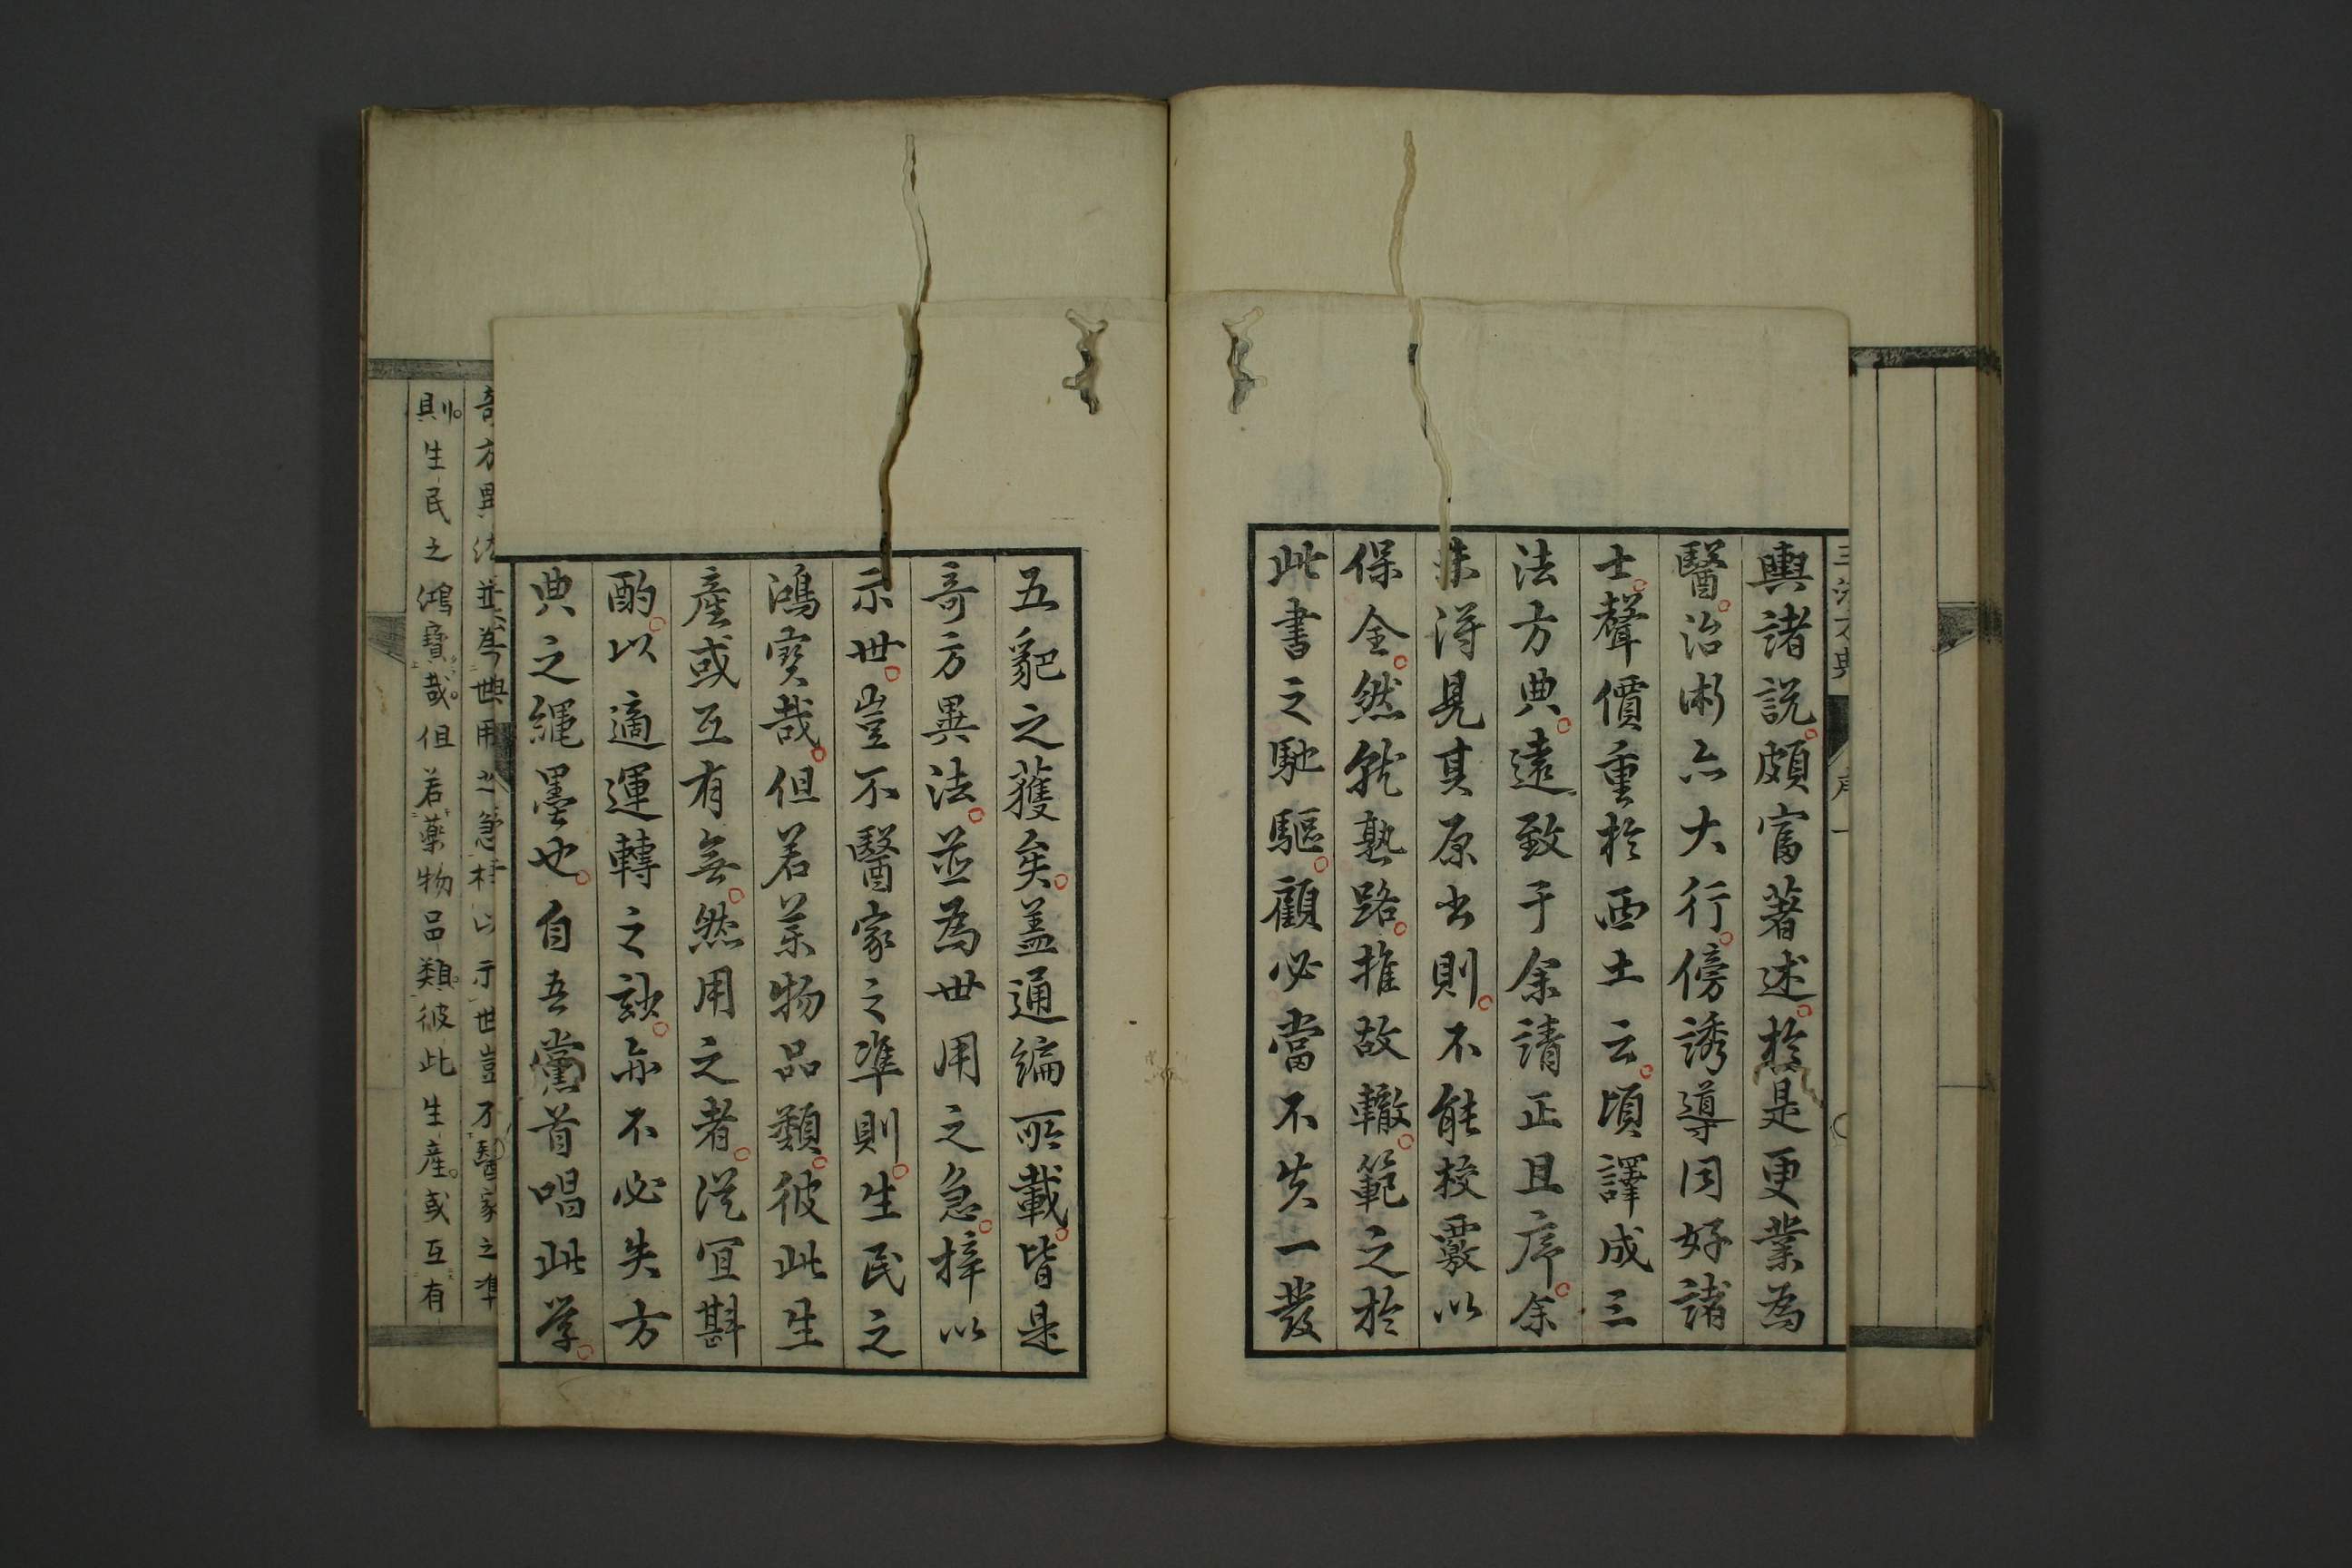 輿諸説。頗富著述。於是更業為
醫。治術亦大行。傍誘導同好諸
士。聲價重於西土云。頃譯成三
法方典。遠致于余請正且序。余
未得見其原書則。不能校覈以
保全。然就熟路。推故轍。範之於
此書之馳驅。顧必當不失一發
五豝之獲矣。蓋通編所載。皆是
奇方異法。並為世用之急。梓以
示世。豈不醫家之準則。生民之
鴻寶哉。但若藥物品類。彼此生
產或互有無。然用之者。從宜斟
酌。以適運轉之訣。亦不必失方
典之繩墨也。自吾黨首唱此学。
奇方異法並為世用之急梓以示世豈不醫家之準
則。生民之鴻寶哉。但若藥物品類。彼此生產。或互有